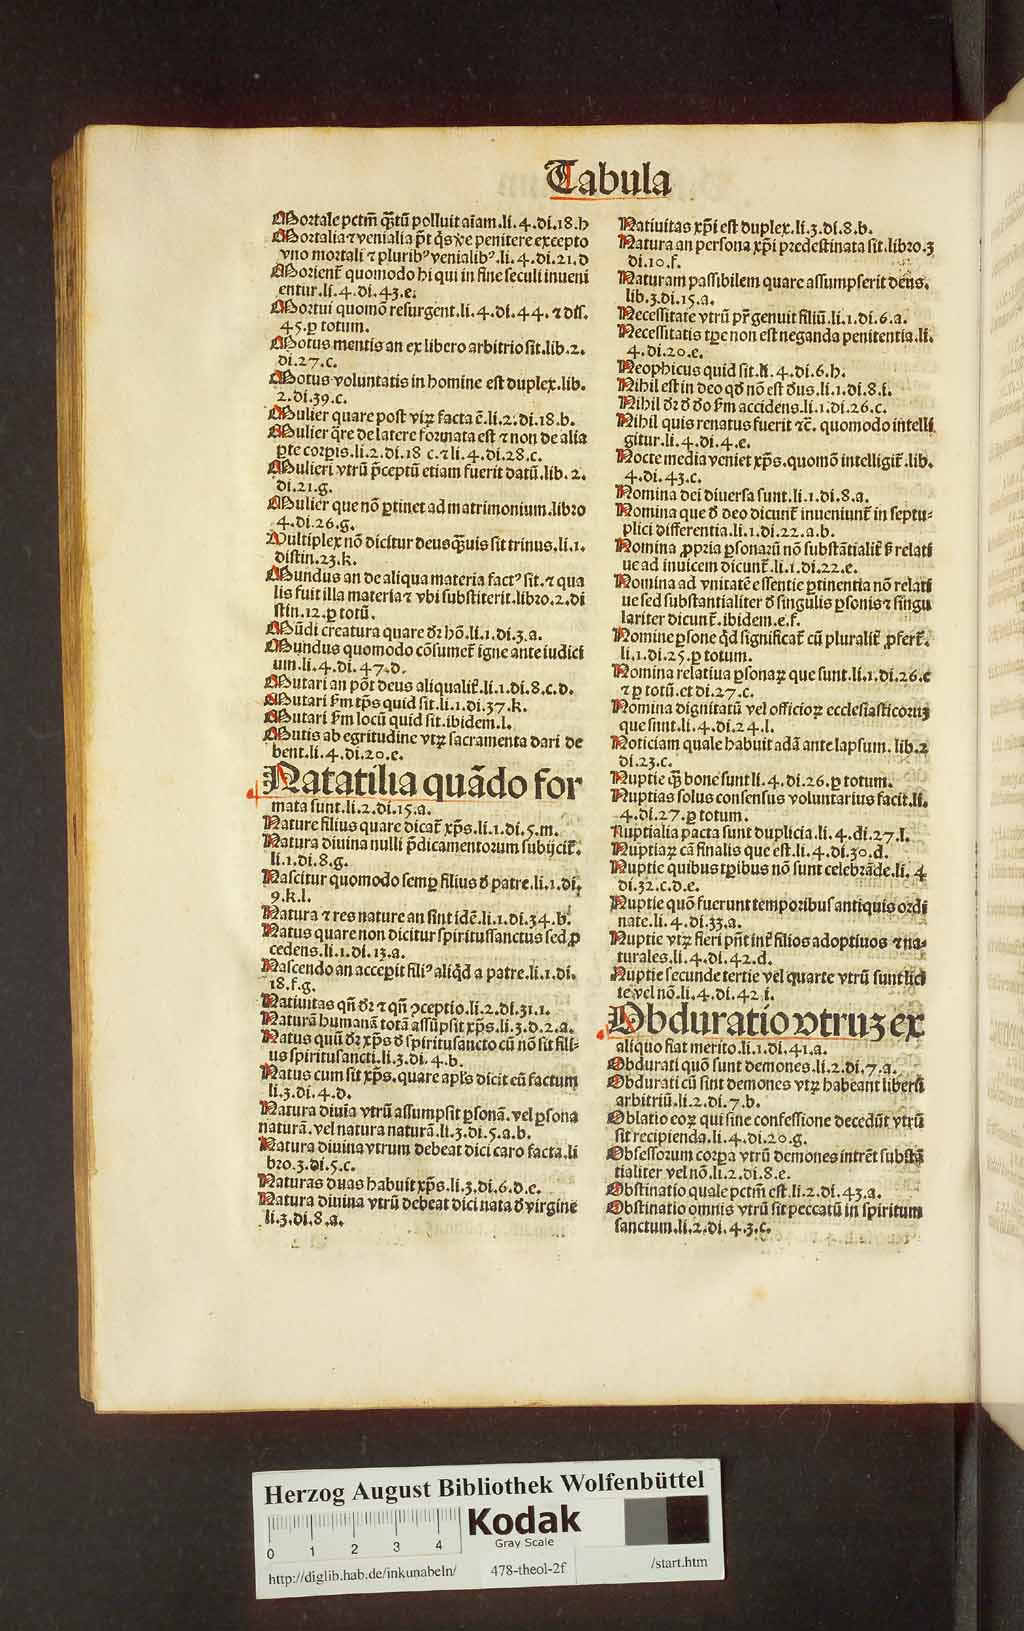 Tabula
Mortale pctm̃ q̃tũ polluit aĩam.li.4.di.18.h
Mortalia ⁊ venialia p̃t q̃s vĩe penitere excepto
vno mortali ⁊ pluribꝰ venialibꝰ.li.4.di.21.d
Morient̃ quomodo hi qui in fine seculi inueni
entur.li.4.di.43.e.
Mortui quomõ resurgent.li.4.di.44.⁊ dis.
45.ꝑ totum.
Motus mentis an ex libero arbitrio sit.lib.2.
di.27.c.
Motus voluntatis in homine est duplex.lib.
2.di.39.c.
Mulier quare post viꝝ facta ẽ.li.2.di.18.b.
Mulier q̃re de latere formata est ⁊ non de alia
ꝑte corꝑis.li.2.di.18 c.⁊ li.4.di.28.c.
Mulieri vtrũ p̃ceptũ etiam fuerit datũ.lib.2.
di.21.g.
Mulier que nõ ꝑtinet ad matrimonium.libro
4.di.26.g.
Multiplex nõ dicitur deus q̃uis sit trinus.li.1.
distin.23.k.
Mundus an de aliqua materia factꝰ sit.⁊ qua
lis fuit illa materia ⁊ vbi substiterit.libro.2.di
stin.12.ꝑ totũ.
Mũdi creatura quare dr̃ hõ.li.1.di.3.a.
Mundus quomodo cõsumet̃ igne ante iudici
um.li.4.di.47.d.
Mutari an põt deus aliqualit̃.li.1.di.8.c.d.
Mutari ẜm tp̃s quid sit.li.1.di.37.k.
Mutari ẜm locũ quid sit.ibidem.l.
Mutis ab egritudine vtꝝ sacramenta dari de
bent.li.4.di.20.e.
Natatilia quãdo for
mata sunt.li.2.di.15.a.
Nature filius quare dicat̃ xp̃s.li.1.di.5.m.
Natura diuina nulli p̃dicamentorum subijcit̃.
li.1.di.8.g.
Nascitur quomodo semꝑ filius đ patre.li.1.di.
9.k.l.
Natura ⁊ res nature an sint idẽ.li.1.di.34.b.
Natus quare non dicitur spiritussanctus sed ꝓ
cedens.li.1.di.13.a.
Nascendo an acceperit filiꝰ aliq̃d a patre.li.1.di.
18.f.g.
Natiuitas qñ dr̃ ⁊ qñ ꝯceptio.li.2.di.31.1.
Naturã humanã totã assũpsit xp̃s.li.3.d.2.a.
Natus quũ dr̃ xp̃s đ spiritusancto cũ nõ sit fili-
us spiritusancti.li.3.di.4.b.
Natus cum sit xp̃s.quare apl̃s dicit eũ factum
li.3.di.4.d.
Natura diuĩa vtrũ assumpsit ꝑsonã.vel ꝑsona
naturã.vel natura naturã.li.3.di.5.a.b.
Natura diuina vtrum debeat dici caro facta.li
bro.3.di.5.c.
Naturas duas habuit xp̃s.li.3.di.6.d.e.
Natura diuina vtrũ debeat dici nata đ virgine
li.3.di.8.a.
Natiuitas xp̃i est duplex.li.3.di.8.b.
Natura an persona xp̃i predestinata sit.libro.3
di.10.f.
Naturam passibilem quare assumpserit deus.
lib.3.di.15.a.
Necessitate vtrũ pr̃ genuit filiũ.li.1.di.6.a.
Necessitatis tꝑe non est neganda penitentia.li.
4.di.20.e.
Neophicus quid sit.li.4.di.6.h.
Nihil est in deo qđ nõ est đus.li.1.di.8.i.
Nihil dr̃ đ đo ẜm accidens.li.1.di.26.c.
Nihil quis renatus fuerit ⁊c̃. quomodo intelli
gitur.li.4.di.4.e.
Nocte media veniet xp̃s.quomõ intelligit̃.lib.
4.di.43.c.
Nomina dei diuersa sunt.li.1.di.8.a.
Nomina que đ deo dicunt̃ inueniunt̃ in septu-
plici differentia.li.1.di.22.a.b.
Nomina ꝓpria ꝑsonarũ nõ substãtialit̃ ẜ relati
ue ad inuicem dicunt̃.li.1.di.22.e.
Nomina ad vnitatẽ essentie ꝑtinentia nõ relati
ue sed substantialiter đ singulis ꝑsonis ⁊ singu
lariter dicunt̃.ibidem.e.f.
Nomine ꝑsone q̃d significat̃ cũ pluralit̃ ꝓfert̃.
li.1.di.25.ꝑ totum.
Nomina relatiua ꝑsonaꝝ que sunt.li.1.di.26.c
⁊ ꝑ totũ.et di.27.c.
Nomina dignitatũ vel officioꝝ ecclesiasticoruꝫ
que sunt.li.4.di.24.l.
Noticiam quale habuit adã ante lapsum.lib.2
di.23.c.
Nuptie q̃ bone sunt li.4.di.26.ꝑ totum.
Nuptias solus consensus voluntarius facit.li.
4.di.27.ꝑ totum.
Nuptialia pacta sunt duplicia.li.4.di.27.l.
Nuptiaꝝ cã finalis que est.li.4.di.30.d.
Nuptie quibus tꝑibus nõ sunt celebrãde.li.4
di.32.c.d.e.
Nuptie quõ fuerunt temporibus antiquis ordi
nate.li.4.di.33.a.
Nuptie vtꝝ fieri pñt int̃ filios adoptiuos ⁊ na-
turales.li.4.di.42.d.
Nuptie secunde tertie vel quarte vtrũ sunt lici
te vel nõ.li.4.di.42 i.
Obduratio vtruꝫ ex
aliquo fiat merito.li.1.di.41.a.
Obdurati quõ sunt demones.li.2.di.7.a.
Obdurati cũ sint demones vtꝝ habeant liberũ
arbitriũ.li.2.di.7.b.
Oblatio eoꝝ qui sine confessione decedũt vtrũ
sit recipienda.li.4.di.20.g.
Obsessorum corꝑa vtrũ demones intrẽt substã
tialiter vel nõ.li.2.di.8.e.
Obstinatio quale pctm̃ est.li.2.di.43.a.
Obstinatio omnis vtrũ sit peccatũ in spiritum
sanctum.li.2.di.43.c.
Herzog August Bibliothek Wolfenbüttel
Kodak
Gray Scale
0 1 2 3 4
http://diglib.hab.de/inkunabeln/ 478-theol-2f /start.htm